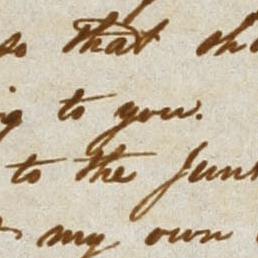 so that sh
g to you.
to the Junt
my own